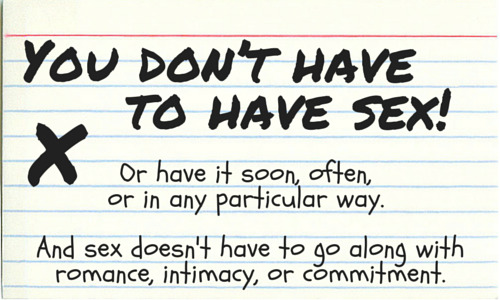 YOU DON'T HAVE
TO HAVE SEX!
X
Or have it soon, often,
or in any particular way.
And sex doesn't have to go along with
romance, intimacy, or commitment.